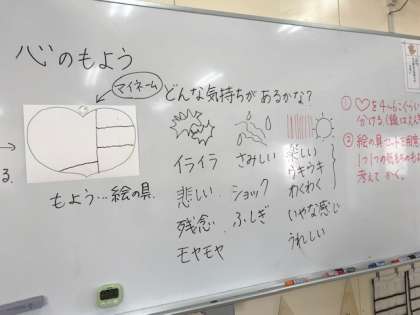 心のもよう
マイネーム
どんな気持ちがあるかな?
もよう…絵の具
イライラ
悲しい
残念
モヤモヤ
さみしい
ショック
ふしぎ
楽しい
ウキウキ
わくわく
いやな感じ
うれしい
る.
① ♡を4〜6こぐらい
分ける
② 絵の具セットを用意
1つ1つ気もちのもよ
考えて かく。